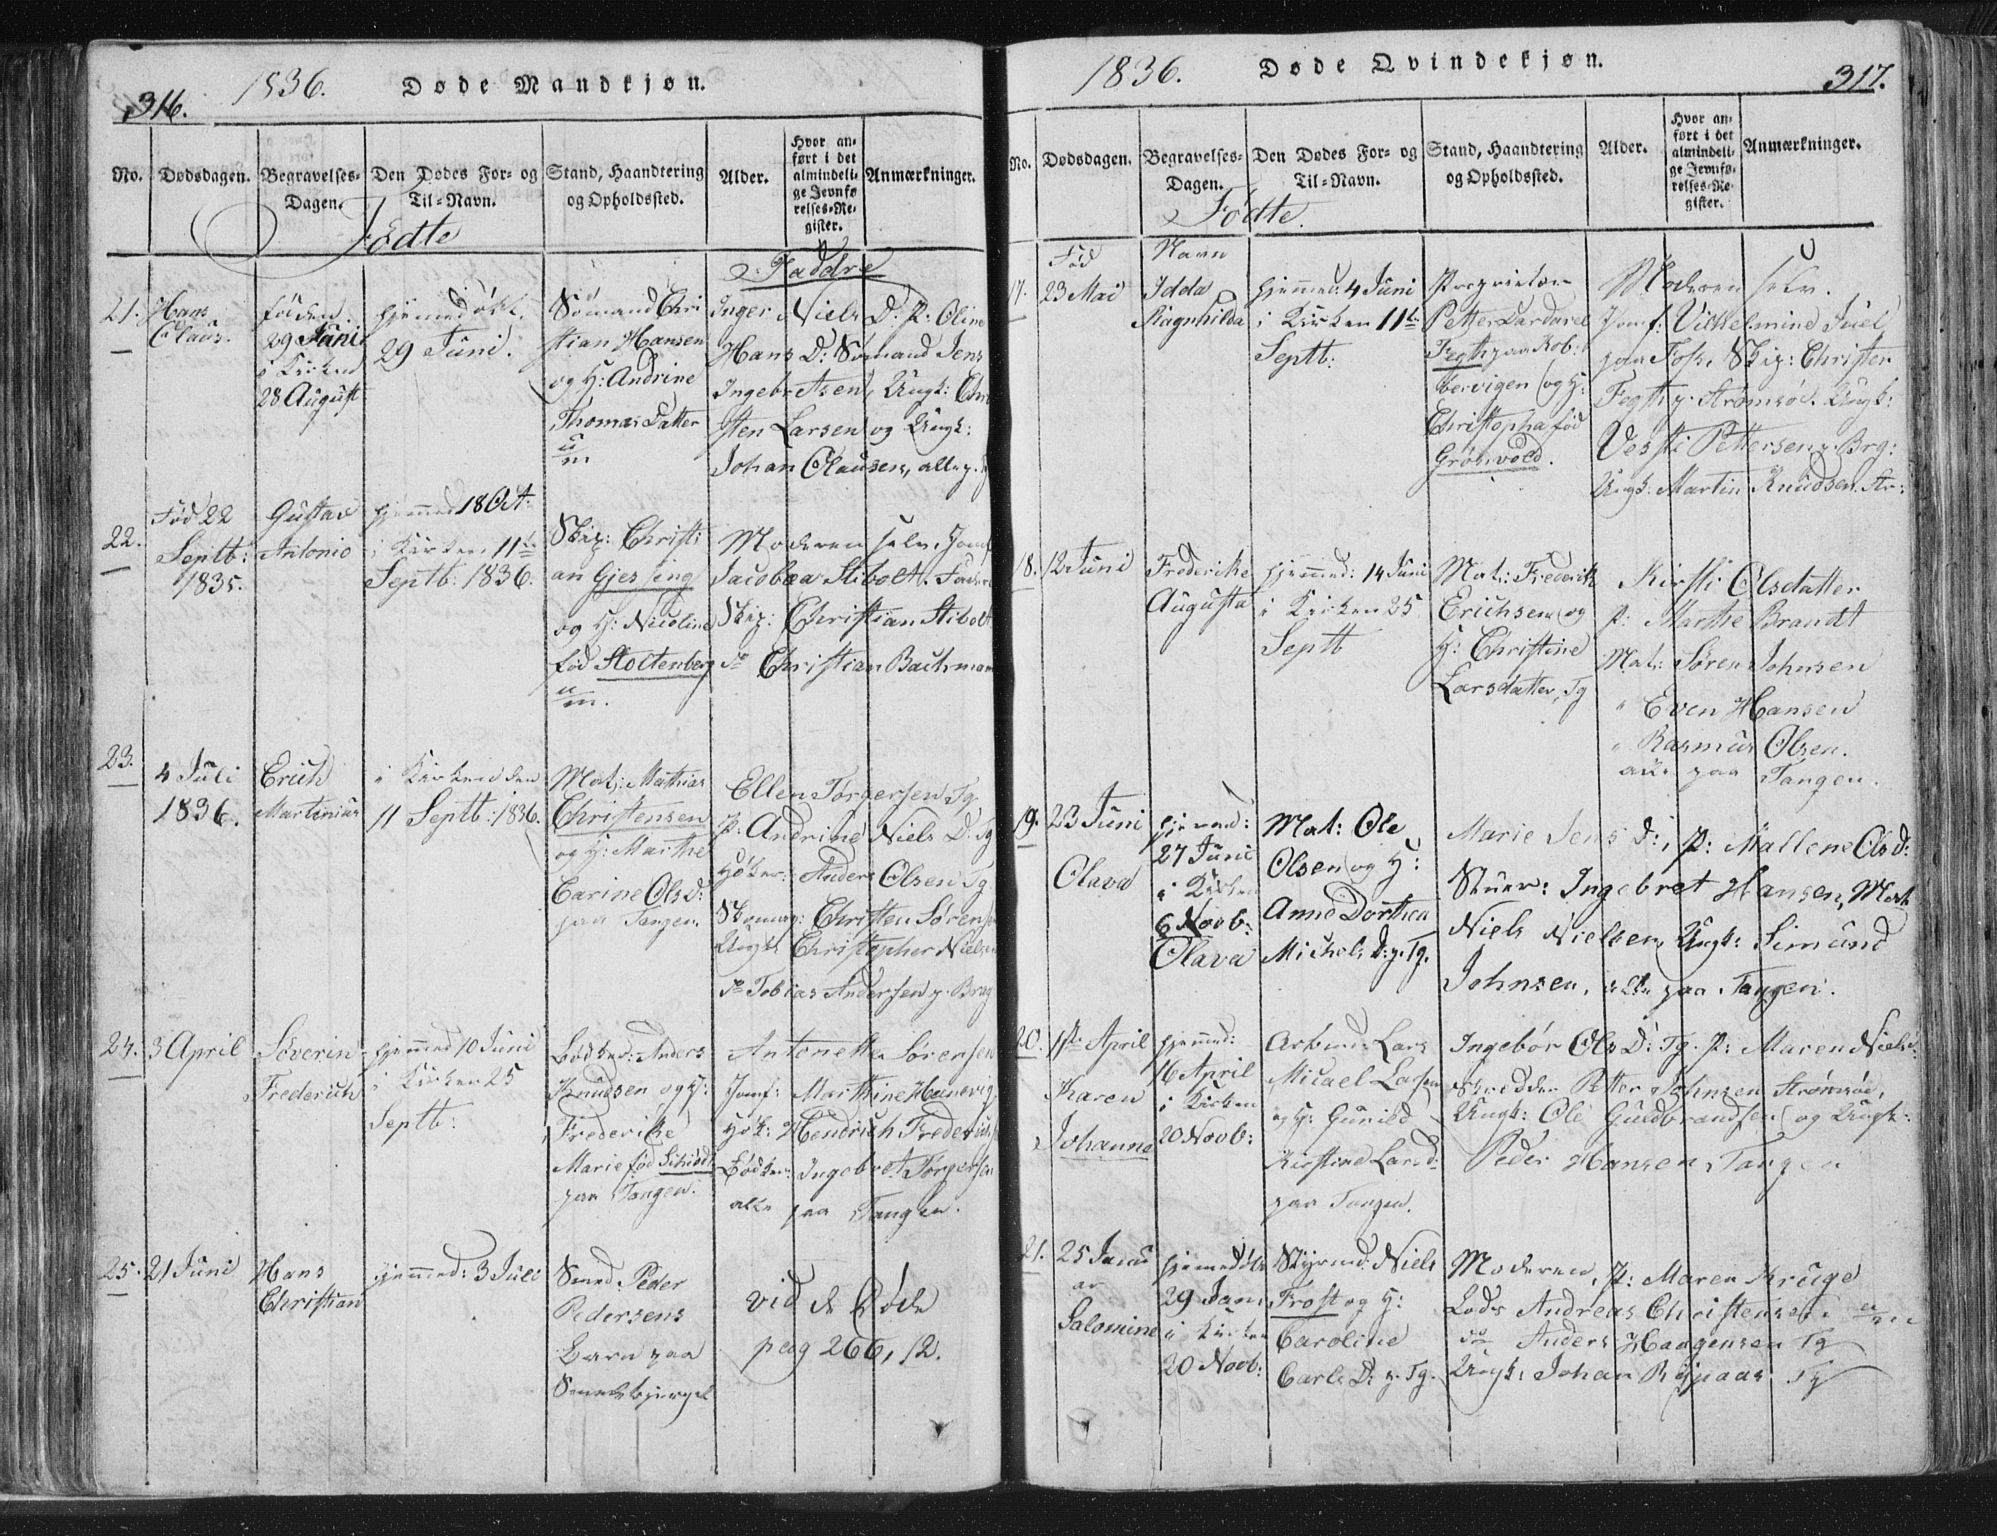 316.
1836.
Døde Mandkjøn.
No.
Dødsdagen.
Begravelses-
Dagen.
Den Dødes For- og
Til-Navn.
Stand, Haandtering
og Opholdssted.
Alder.
Hvor an-
ført i det
almindeli-
ge Jevnfø
relses-Re-
gister.
Anmærkninger.
Fødte
Faddre
21.
Hans
Claus.
føden
29 Juni
i Kirken
28 August
hjemedøbt
29 Juni.
Sømand Chri
stian Hansen
og H: Andrine
Thomas Datter
Inger Niels D: P: Oline
Hans D: Sømand Jens
Ingebretsen, Ungk:
sten Larsen og Ungk:
Johan Clausen, alle p.
22.
Fød 22
Septb:
1835.
Gustav
Antonio
hjemmed 18 Oct.
i Kirken 11te
Septb: 1836.
Skip: Christi
an Gjessing
og H: Nicoline
fød Stoltenberg
Moderen selv, Jomf
Jacobæa Stibolt.
Skip: Christian Stibolt
do Christian Bachman
23.
4 Juli
1836.
Erich
Martinius
i Kirken den
11 Septb: 1836.
Mat: Mathias
Christensen
og H: Marthe
Carine Ols d:
paa Tangen.
Ellen Torgersen Tg
P. Andrine Niels D: Tg
Høker: Anders Olsen Tg
Skomag: Christen Søren
Ungk Christopher Nielsen
do Tobias Andersen p. Brag
24.
3 April
Severin
Frederich
hjemmed 10 Juni
i Kirken 25
Septb:
Bødker: Anders
Knudsen og H:
Frederikke
Marie fød Schiødt
paa Tangen.
Antonette Sørensen
Jomf: Marthine Hanevig
Høk: Hendrich Frederich
Bødker: Ingebret Torgersen
alle paa Tangen.
25.
21 Juni
Hans
Christian
hjemmed: 3 Juli
Smed Peder
Pedersens
Barn paa
vid de Døde
pag 266, 12.
1836.
Døde Qvindekjøn.
317.
No.
Dødsdagen.
Begravelses-
Dagen.
Den Dødes For- og
Til-Navn.
Stand, Haandtering
og Opholdssted.
Alder.
Hvor an-
ført i det
almindeli-
ge Jevnfø-
relses-Re-
gister.
Anmærkninger.
Fødte.
Fød
Navn
17.
23 Mai
Idda
Ragnhilda
hjemmed: 4 Juni
i Kirken 11te
Septb:
Proprietær
Petter
Fegth paa Kob:
bervigen og H:
Christopha fød
Grønvold.
Moderen selv.
Jomf: Vilhelmine Juel
paa Foss, Skip: Christen
Fegth p. Strømsød. Ungk:
Petterson p. Brg:
Ungk: Martin Knudsen Str:
18.
12 Juni
Frederike
Augusta
hjemmed: 14 Juni
i Kirken 25
Septb
Mat: Frederik
Erichsen og
H: Christine
Larsdatter, Tg
Kirsti Olsdatter
P: Marthe Brandt
Mat: Søren Johnsen
" Even Hansen
" Rasmus Olsen.
alle paa Tangen.
19.
23 Juni
Olava
hjemmed:
27 Juni
i Kirken
6 Novb:
Olava
Mat: Ole
Olsen og H:
Anne Dorthea
Michels D: p. Tg.
Marie Jens D:, P: Mallene Ols d:
Stuer: Ingebret Hansen, Mat
Niels Nielsen, Ungk: Simund
Johnsen, alle paa Tangen.
20.
1ste April
Karen
Johanne
hjemmed:
16 April
i Kirken
20 Novb:
Arbmd: Lars
Micael Larsen
og H: Gunild
Kirstine Lars d:
paa Tangen.
Ingebør Ols D: Tg. P: Maren Niels d:
Skredder Petter Johnsen Strømsød,
Ungk: Ole Guldbrandsen og Ungk:
Peder Hansen, Tangen
21.
25 Janu
ar
Salomine
hjemedøbt
29 Jan,
i Kirken
20 Novb:
Styrmd: Niels
Frost og H:
Caroline
Carls D: p. Tg.
Moderen, P: Maren Kruge
Lods Andreas Christensen
do Anders Haagensen Tg
Ungk: Johan Tg